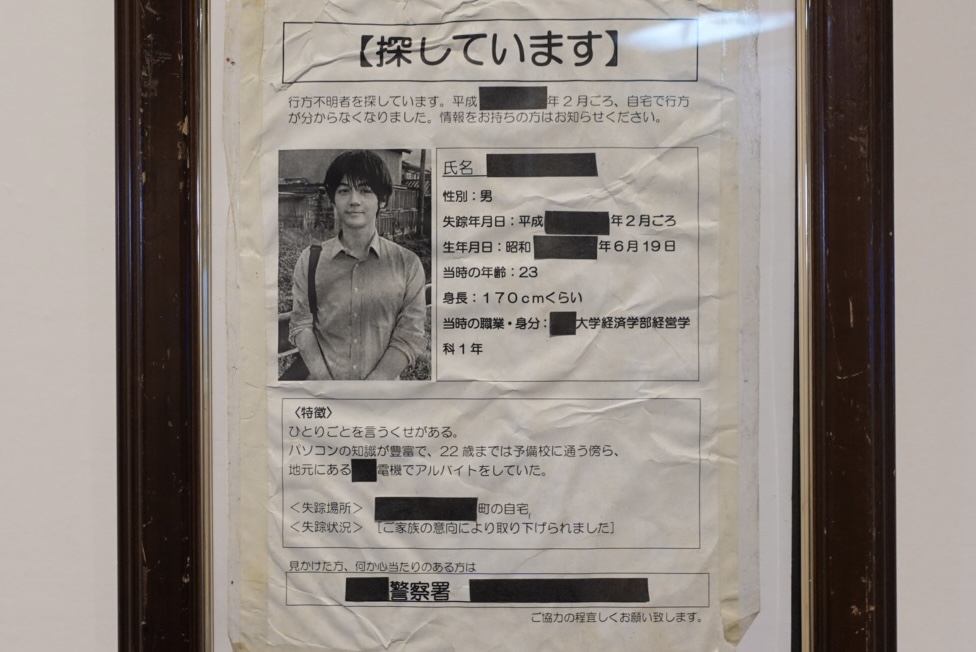 【探しています】
行方不明者を探しています。平成年2月ごろ、自宅で行方
が分からなくなりました。情報をお持ちの方はお知らせください。
氏名
性別：男
失踪年月日：平成年2月ごろ
生年月日：昭和年6月19日
当時の年齢：23
身長：170cmくらい
当時の職業・身分：大学経済学部経営学
科1年
〈特徴〉
ひとりごとを言うくせがある。
パソコンの知識が豊富で、22歳までは予備校に通う傍ら、
地元にある電機でアルバイトをしていた。
＜失踪場所＞ 町の自宅
＜失踪状況＞ [ご家族の意向により取り下げられました]
見かけた方、何か心当たりのある方は
警察署
ご協力の程宜しくお願い致します。